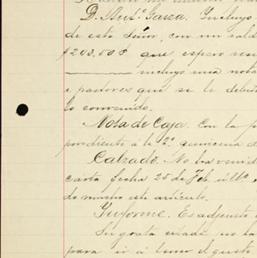 D. Ant.º Garza. Incluyo
de este Señor, con un sald
$203.50 que espero
incluyo una nota
é pastores que se le debi
lo convenido.
Nota de Caja. Con la
pondiente á la 2ª quincena d
Calzado. No ha veni
carta fecha 25 de Feb. últº
do mucho este artículo.
Informe. Es adjunto
Sin grata
para ir á